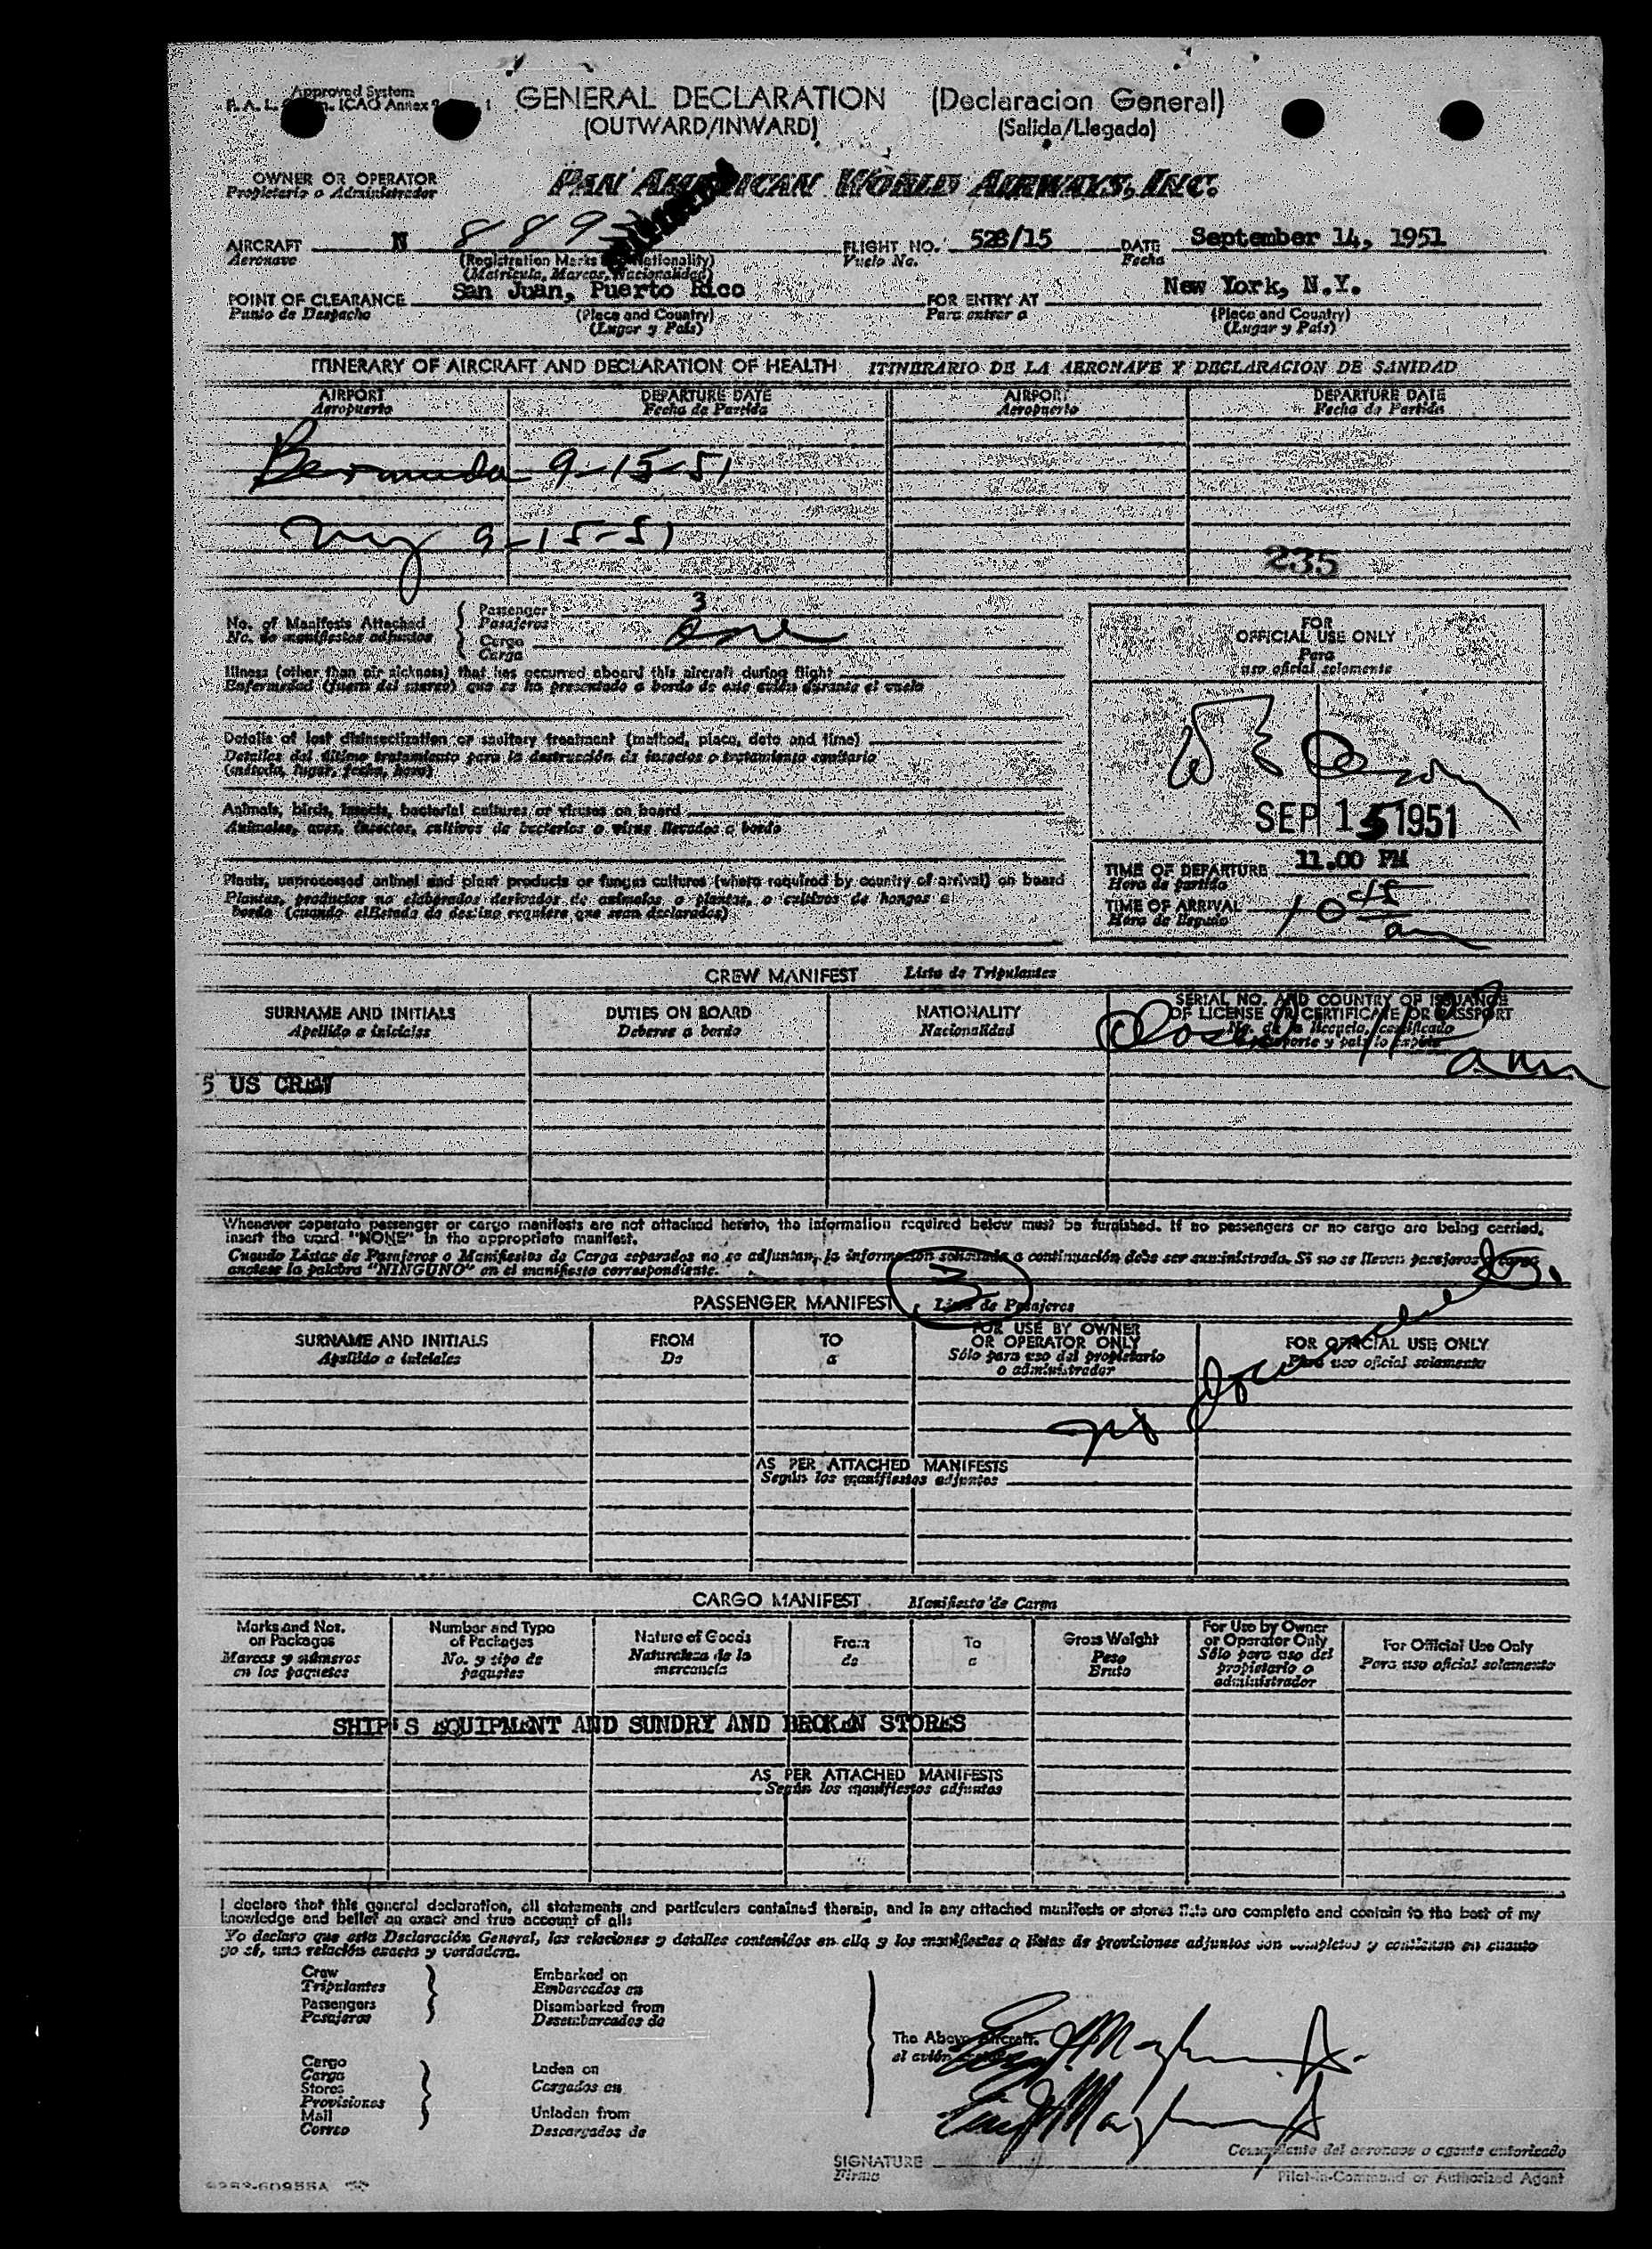 Approved System
F. A. L. ICAO Annex 9 1
GENERAL DECLARATION (Declaracion General)
(OUTWARD/INWARD) (Salida/Llegada)
OWNER OR OPERATOR
Propietario o Administrador
PAN AMERICAN WORLD AIRWAYS, INC.
AIRCRAFT N 889 FLIGHT NO. 528/15 DATE September 14, 1951
Aeronave (Registration Marks Nationality) Vuelo No. Fecha
(Matricula, Marcas, Nacionalidad)
POINT OF CLEARANCE San Juan, Puerto Rico FOR ENTRY AT New York, N.Y.
Punto de Despacho (Place and Country) Para entrar a (Place and Country)
(Lugar y País) (Lugar y País)
ITINERARY OF AIRCRAFT AND DECLARATION OF HEALTH ITINERARIO DE LA AERONAVE Y DECLARACION DE SANIDAD
AIRPORT DEPARTURE DATE AIRPORT DEPARTURE DATE
Aeropuerto Fecha de Partida Aeropuerto Fecha de Partida
Bermuda 9-15-51
NY 9-15-51
235
No. of Manifests Attached Passenger 3
No. de manifiestos adjuntos Pasajeros
Cargo
Carga
Illness (other than air sickness) that has occurred aboard this aircraft during flight
Enfermedad (fuera del mareo) que se ha presentado a bordo de este avión durante el vuelo
Details of last disinsectization or sanitary treatment (method, place, date and time)
Detalles del último tratamiento para la destrucción de insectos o tratamiento sanitario
(método, lugar, fecha, hora)
Animals, birds, insects, bacterial cultures or viruses on board
Animales, aves, insectos, cultivos de bacterias o virus llevados a bordo
Plants, unprocessed animal and plant products or fungus cultures (where required by country of arrival) on board
Plantas, productos no elaborados derivados de animales o plantas, o cultivos de hongos a
bordo (cuando elEstado de destino requiere que sean declarados)
FOR
OFFICIAL USE ONLY
Para
uso oficial solamente
SEP 15 1951
TIME OF DEPARTURE 11.00 PM
Hora de partida
TIME OF ARRIVAL 10 am
Hora de llegada
CREW MANIFEST Lista de Tripulantes
SURNAME AND INITIALS DUTIES ON BOARD NATIONALITY SERIAL NO. AND COUNTRY OF ISSUANCE
OF LICENSE OR CERTIFICATE OR PASSPORT
Apellido e iniciales Deberes a bordo Nacionalidad No. de la licencia, certificado
am
5 US CREW
Whenever separate passenger or cargo manifests are not attached hereto, the information required below must be furnished. If no passengers or no cargo are being carried,
insert the word "NONE" in the appropriate manifest.
Cuando Listas de Pasajeros o Manifiestos de Carga separados no se adjuntan, la información solicitada a continuación debe ser suministrada. Si no se llevan pasajeros o carga
anótese la palabra "NINGUNO" en el manifiesto correspondiente.
3
PASSENGER MANIFEST Lista de Pasajeros
SURNAME AND INITIALS FROM TO FOR USE BY OWNER
OR OPERATOR ONLY FOR OFFICIAL USE ONLY
Apellido e iniciales De a Sólo para uso del propietario
o administrador Para uso oficial solamente
AS PER ATTACHED MANIFESTS
Según los manifiestos adjuntos
CARGO MANIFEST Manifiesto de Carga
Marks and Nos.
on Packages
Marcas y números
en los paquetes
Number and Type
of Packages
No. y tipo de
paquetes
Nature of Goods
Naturaleza de la
mercancia
From
de
To
a
Gross Weight
Peso
Bruto
For Use by Owner
or Operator Only
Sólo para uso del
propietario o
administrador
For Official Use Only
Para uso oficial solamente
SHIP'S EQUIPMENT AND SUNDRY AND BROKEN STORES
AS PER ATTACHED MANIFESTS
Según los manifiestos adjuntos
I declare that this general declaration, all statements and particulars contained therein, and in any attached manifests or stores lists are complete and contain to the best of my
knowledge and belief an exact and true account of all:
Yo declaro que esta Declaración General, las relaciones y detalles contenidos en ella y los manifiestos o listas de provisiones adjuntos son completos y contienen en cuanto
yo sé, una relación exacta y verdadera.
Crew
Tripulantes
Passengers
Pasajeros
Embarked on
Embarcados en
Disembarked from
Desembarcados de
The Above Aircraft.
el avión
Cargo
Carga
Stores
Provisiones
Mail
Correo
Laden on
Cargados en
Unladen from
Descargados de
SIGNATURE
Firma
Comandante del aeronave o agente autorizado
Pilot-in-Command or Authorized Agent